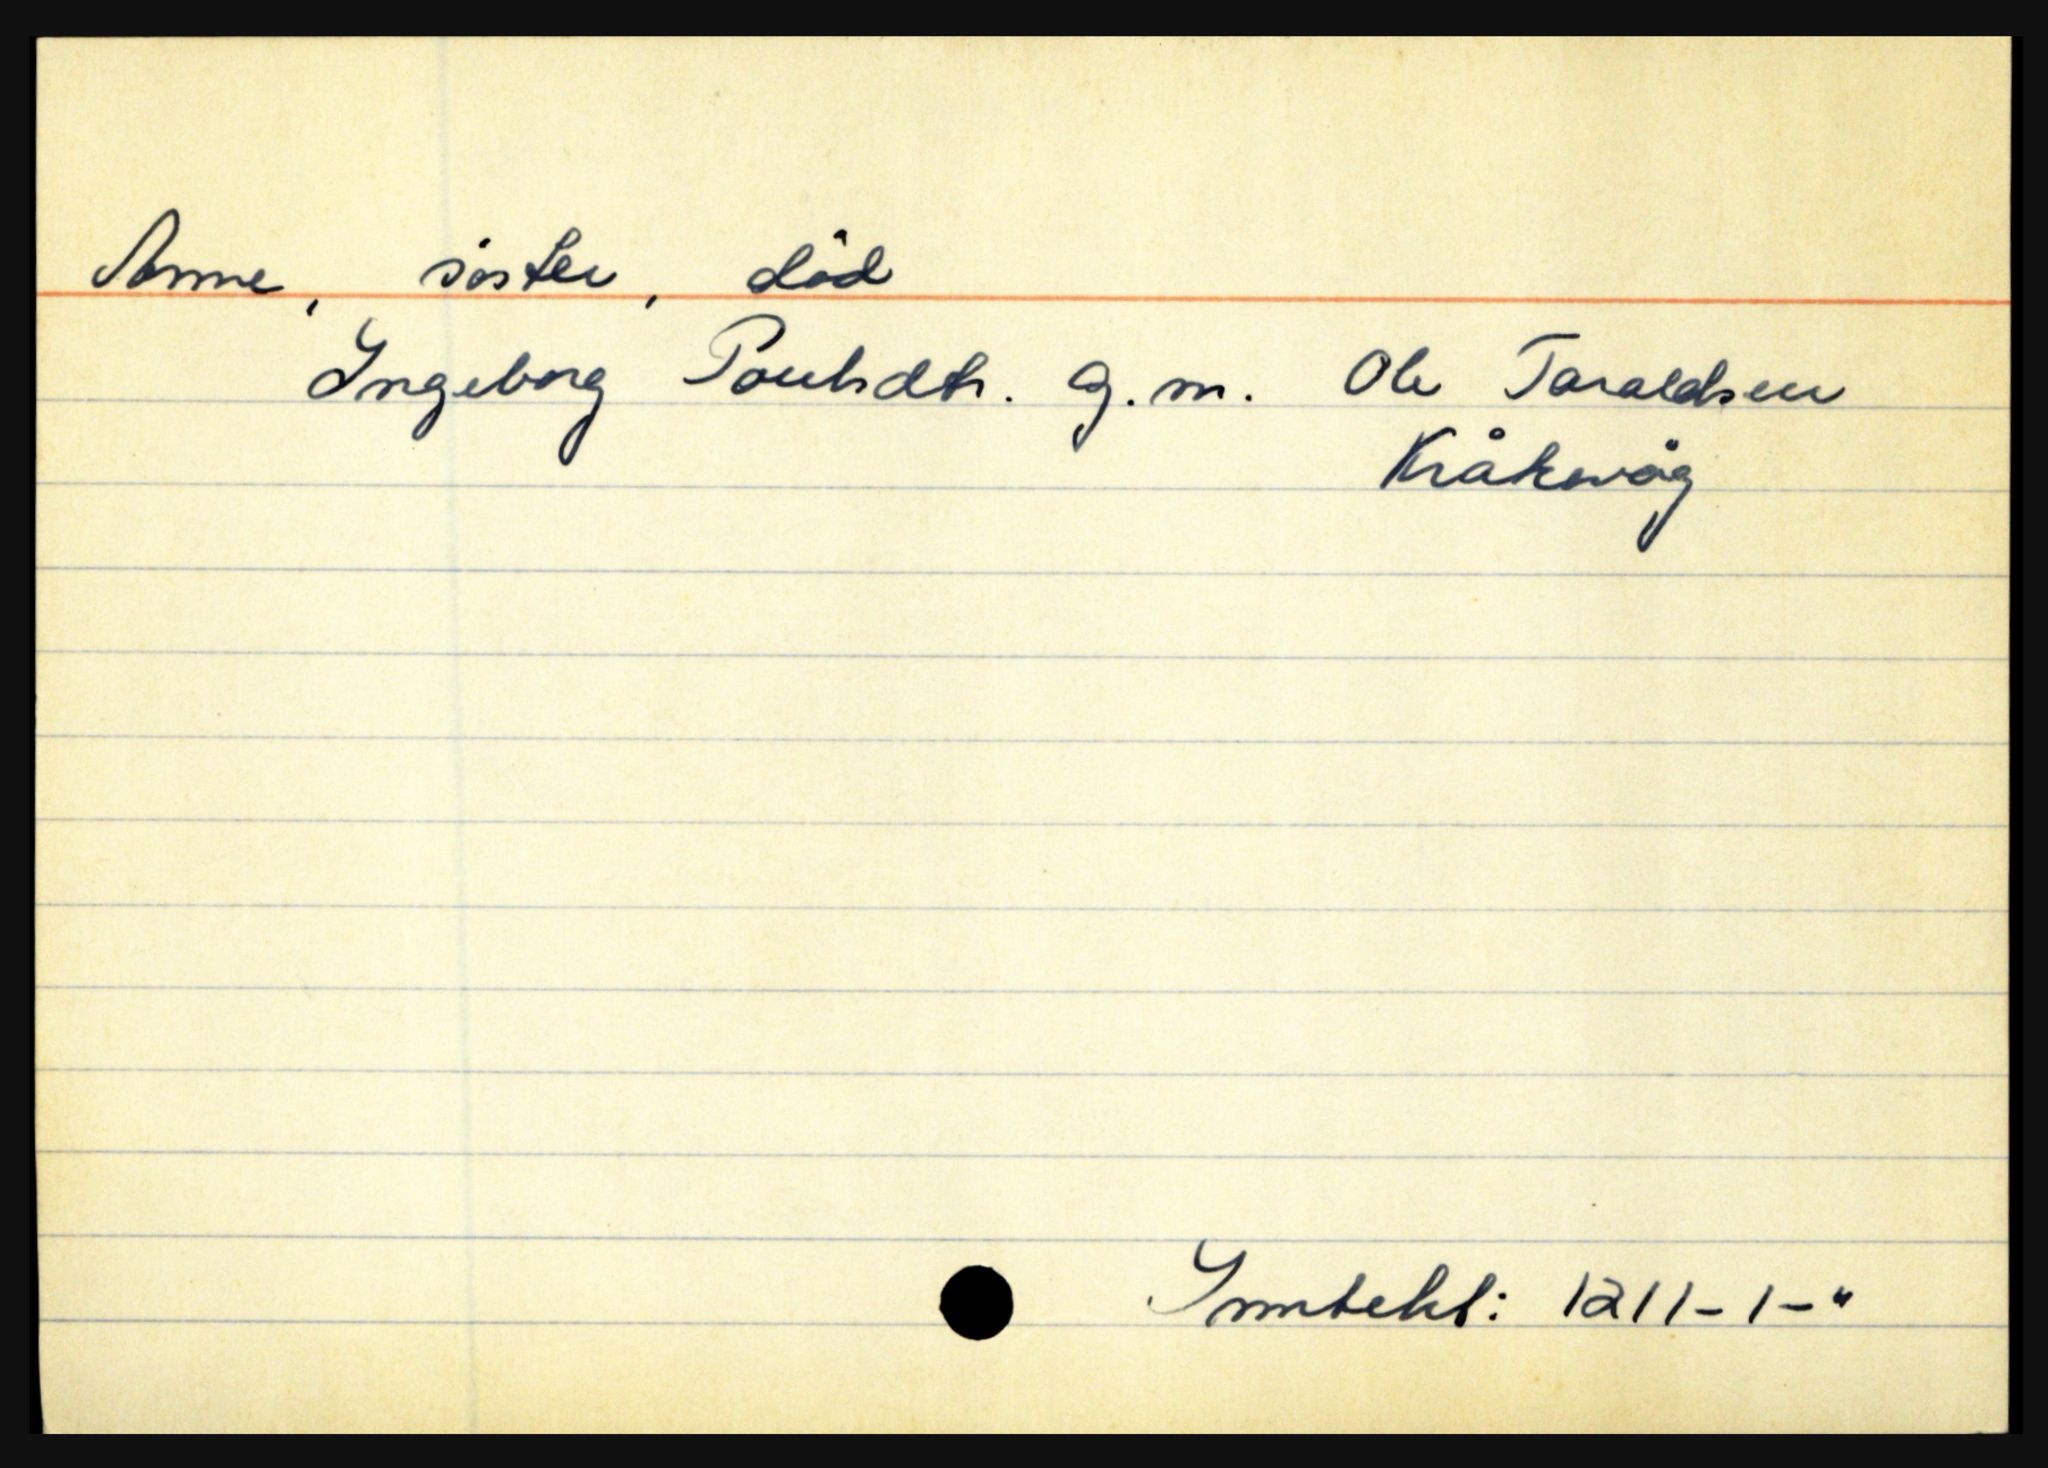 Anne, søster, død
Ingeborg Poulsdtr. g.m. Ole Taraldsen
Kråkevåg
Inntekt: 1211-1-"